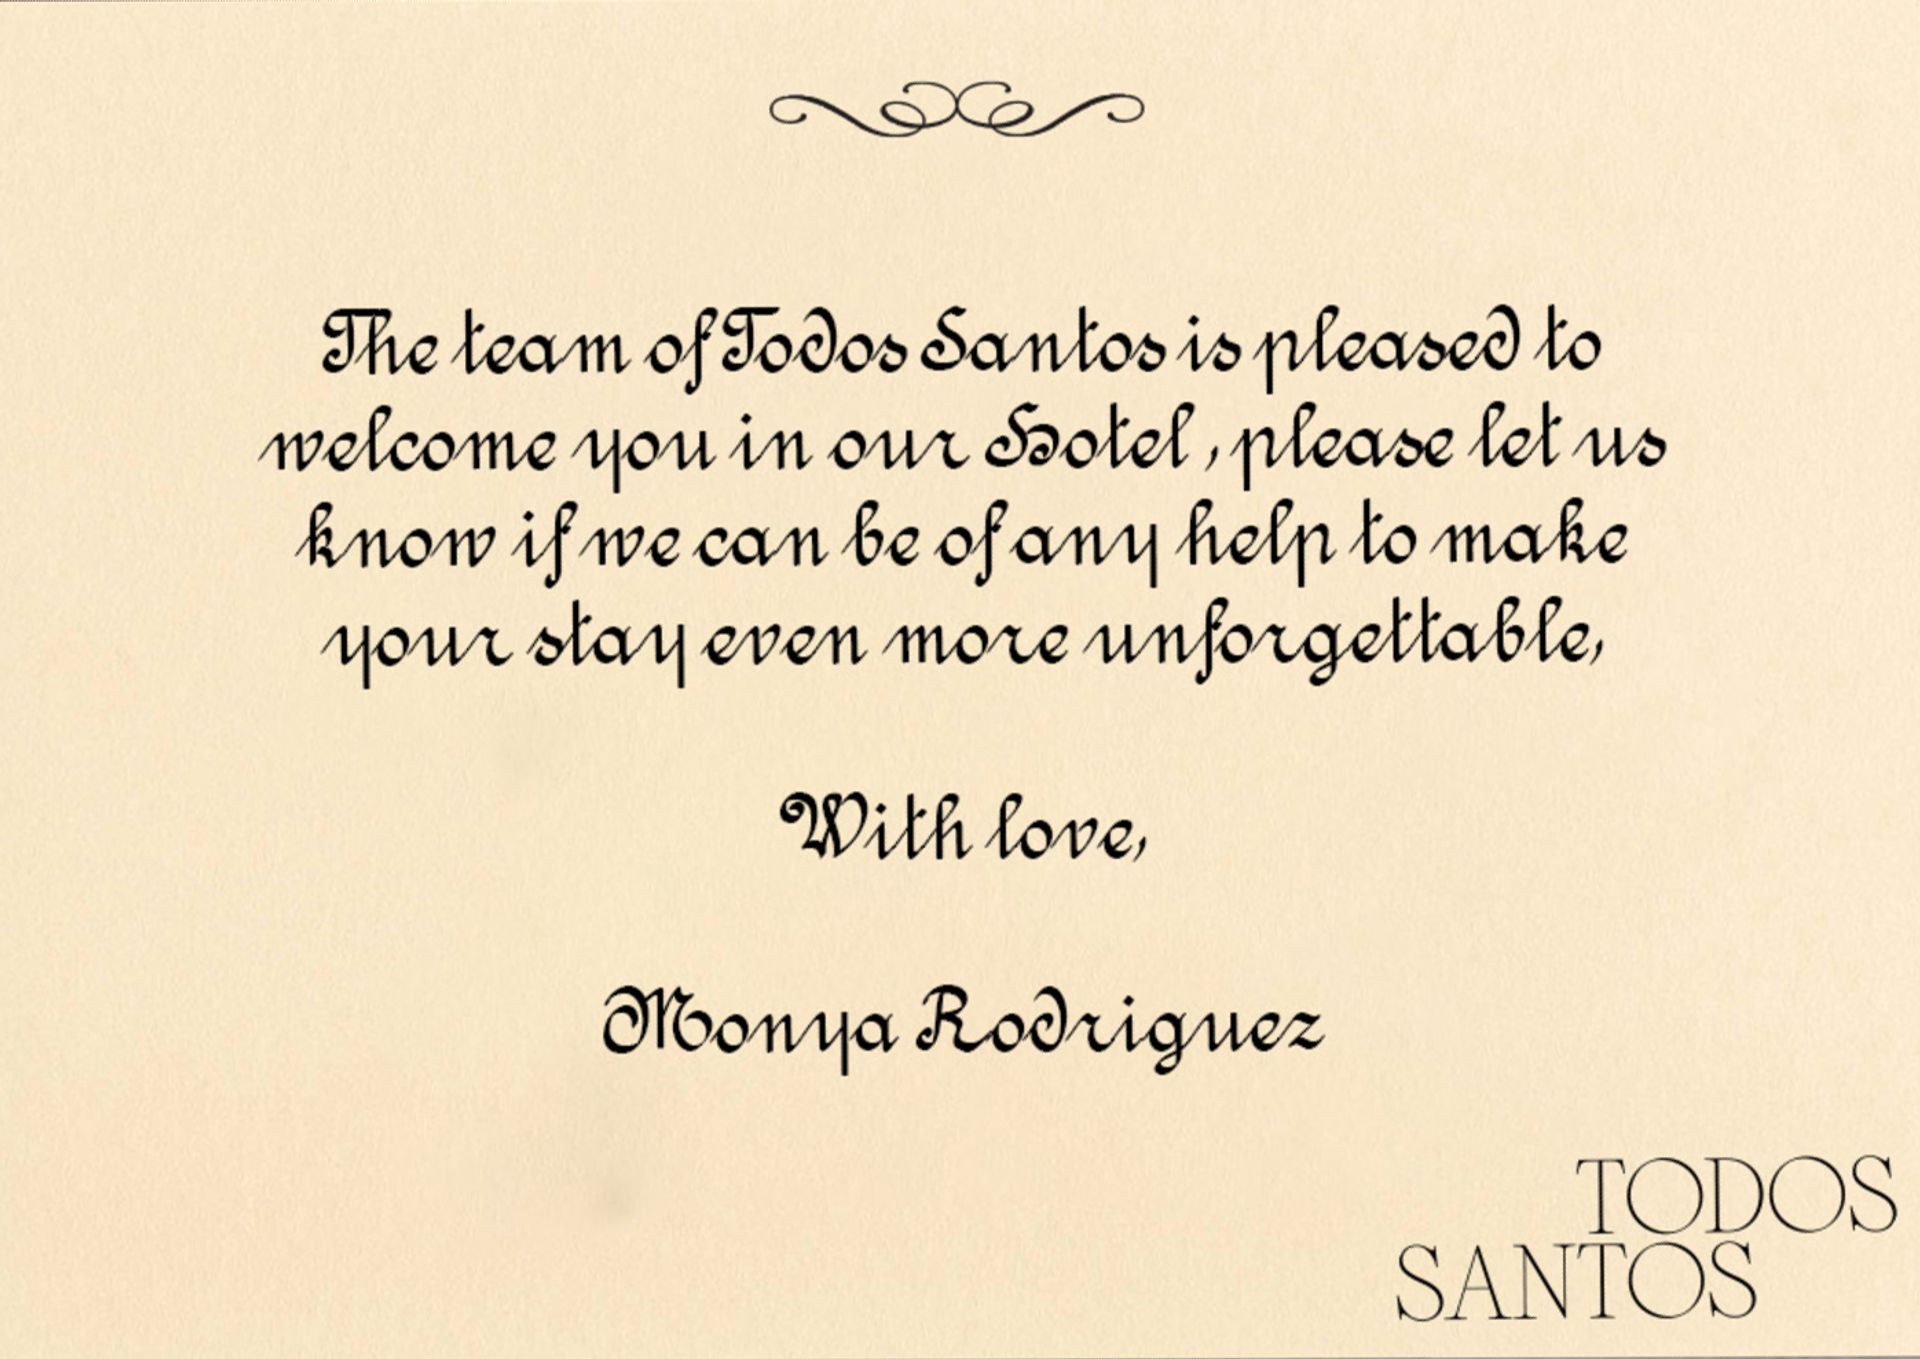 The team of Todos Santos is pleased to
welcome you in our Hotel , please let us
know if we can be of any help to make
your stay even more unforgettable,
With love,
Monya Rodriguez
TODOS
SANTOS